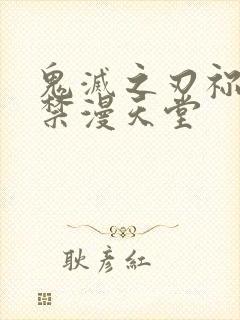 鬼滅之刃祢
禁漫天堂
耿彦紅